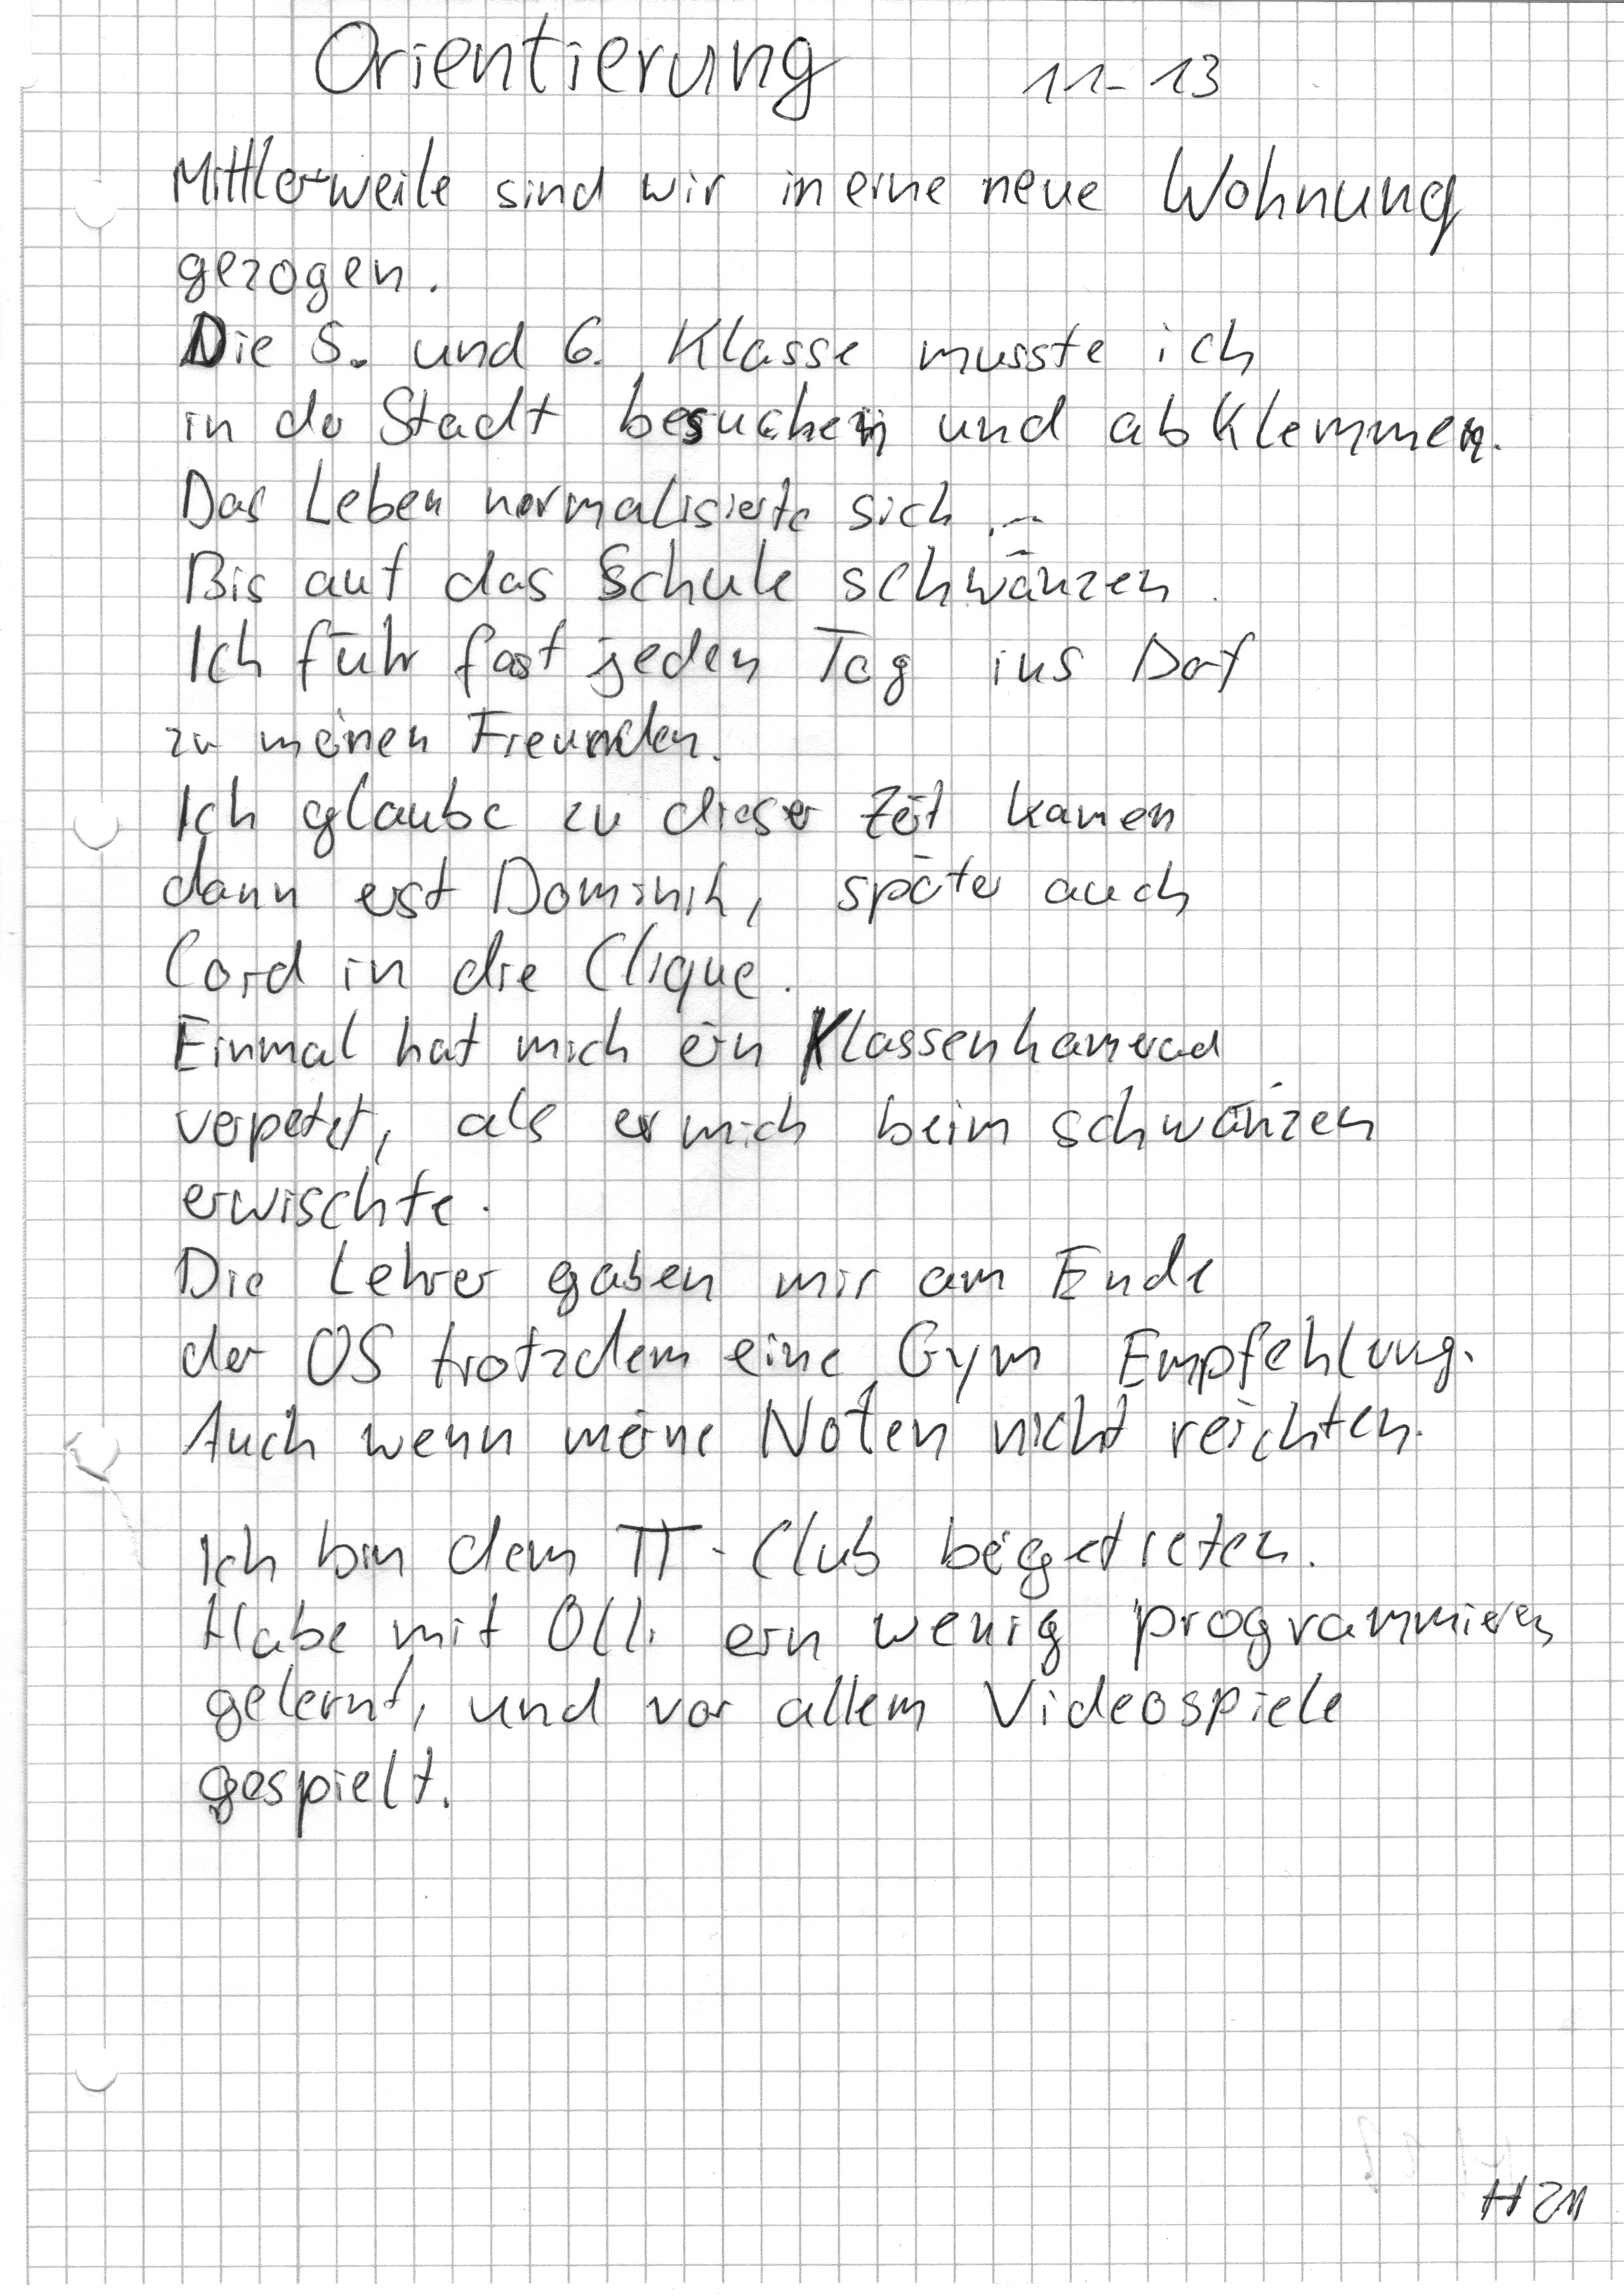 Orientierung 11-13
Mittlerweile sind wir in eine neue Wohnung
gezogen.
Die 5. und 6. Klasse musste ich
in der Stadt besuchen und abklemmen.
Das Leben normalisierte sich.
Bis auf das Schule schwänzen.
Ich fuhr fast jeden Tag ins Dorf
zu meinen Freunden.
Ich glaube zu dieser Zeit kamen
dann erst Dominik, später auch
Cord in die Clique.
Einmal hat mich ein Klassenkamerad
verpetzt, als er mich beim schwänzen
erwischte.
Die Lehrer gaben mir am Ende
der OS trotzdem eine Gym Empfehlung.
Auch wenn meine Noten nicht reichten.
Ich bin dem TT-Club beigetreten.
Habe mit Olli ein wenig programmieren
gelernt, und vor allem Videospiele
gespielt.
H21